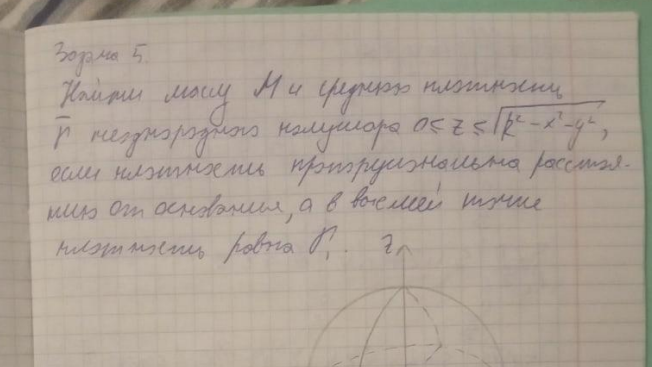 Задача 5.
Найти массу M и среднюю плотность
γ неоднородного полушара 0 ≤ z ≤ √(R² − x² − y²),
если плотность пропорциональна расстоя-
нию от основания, а в высшей точке
плотность равна γ₁.
z